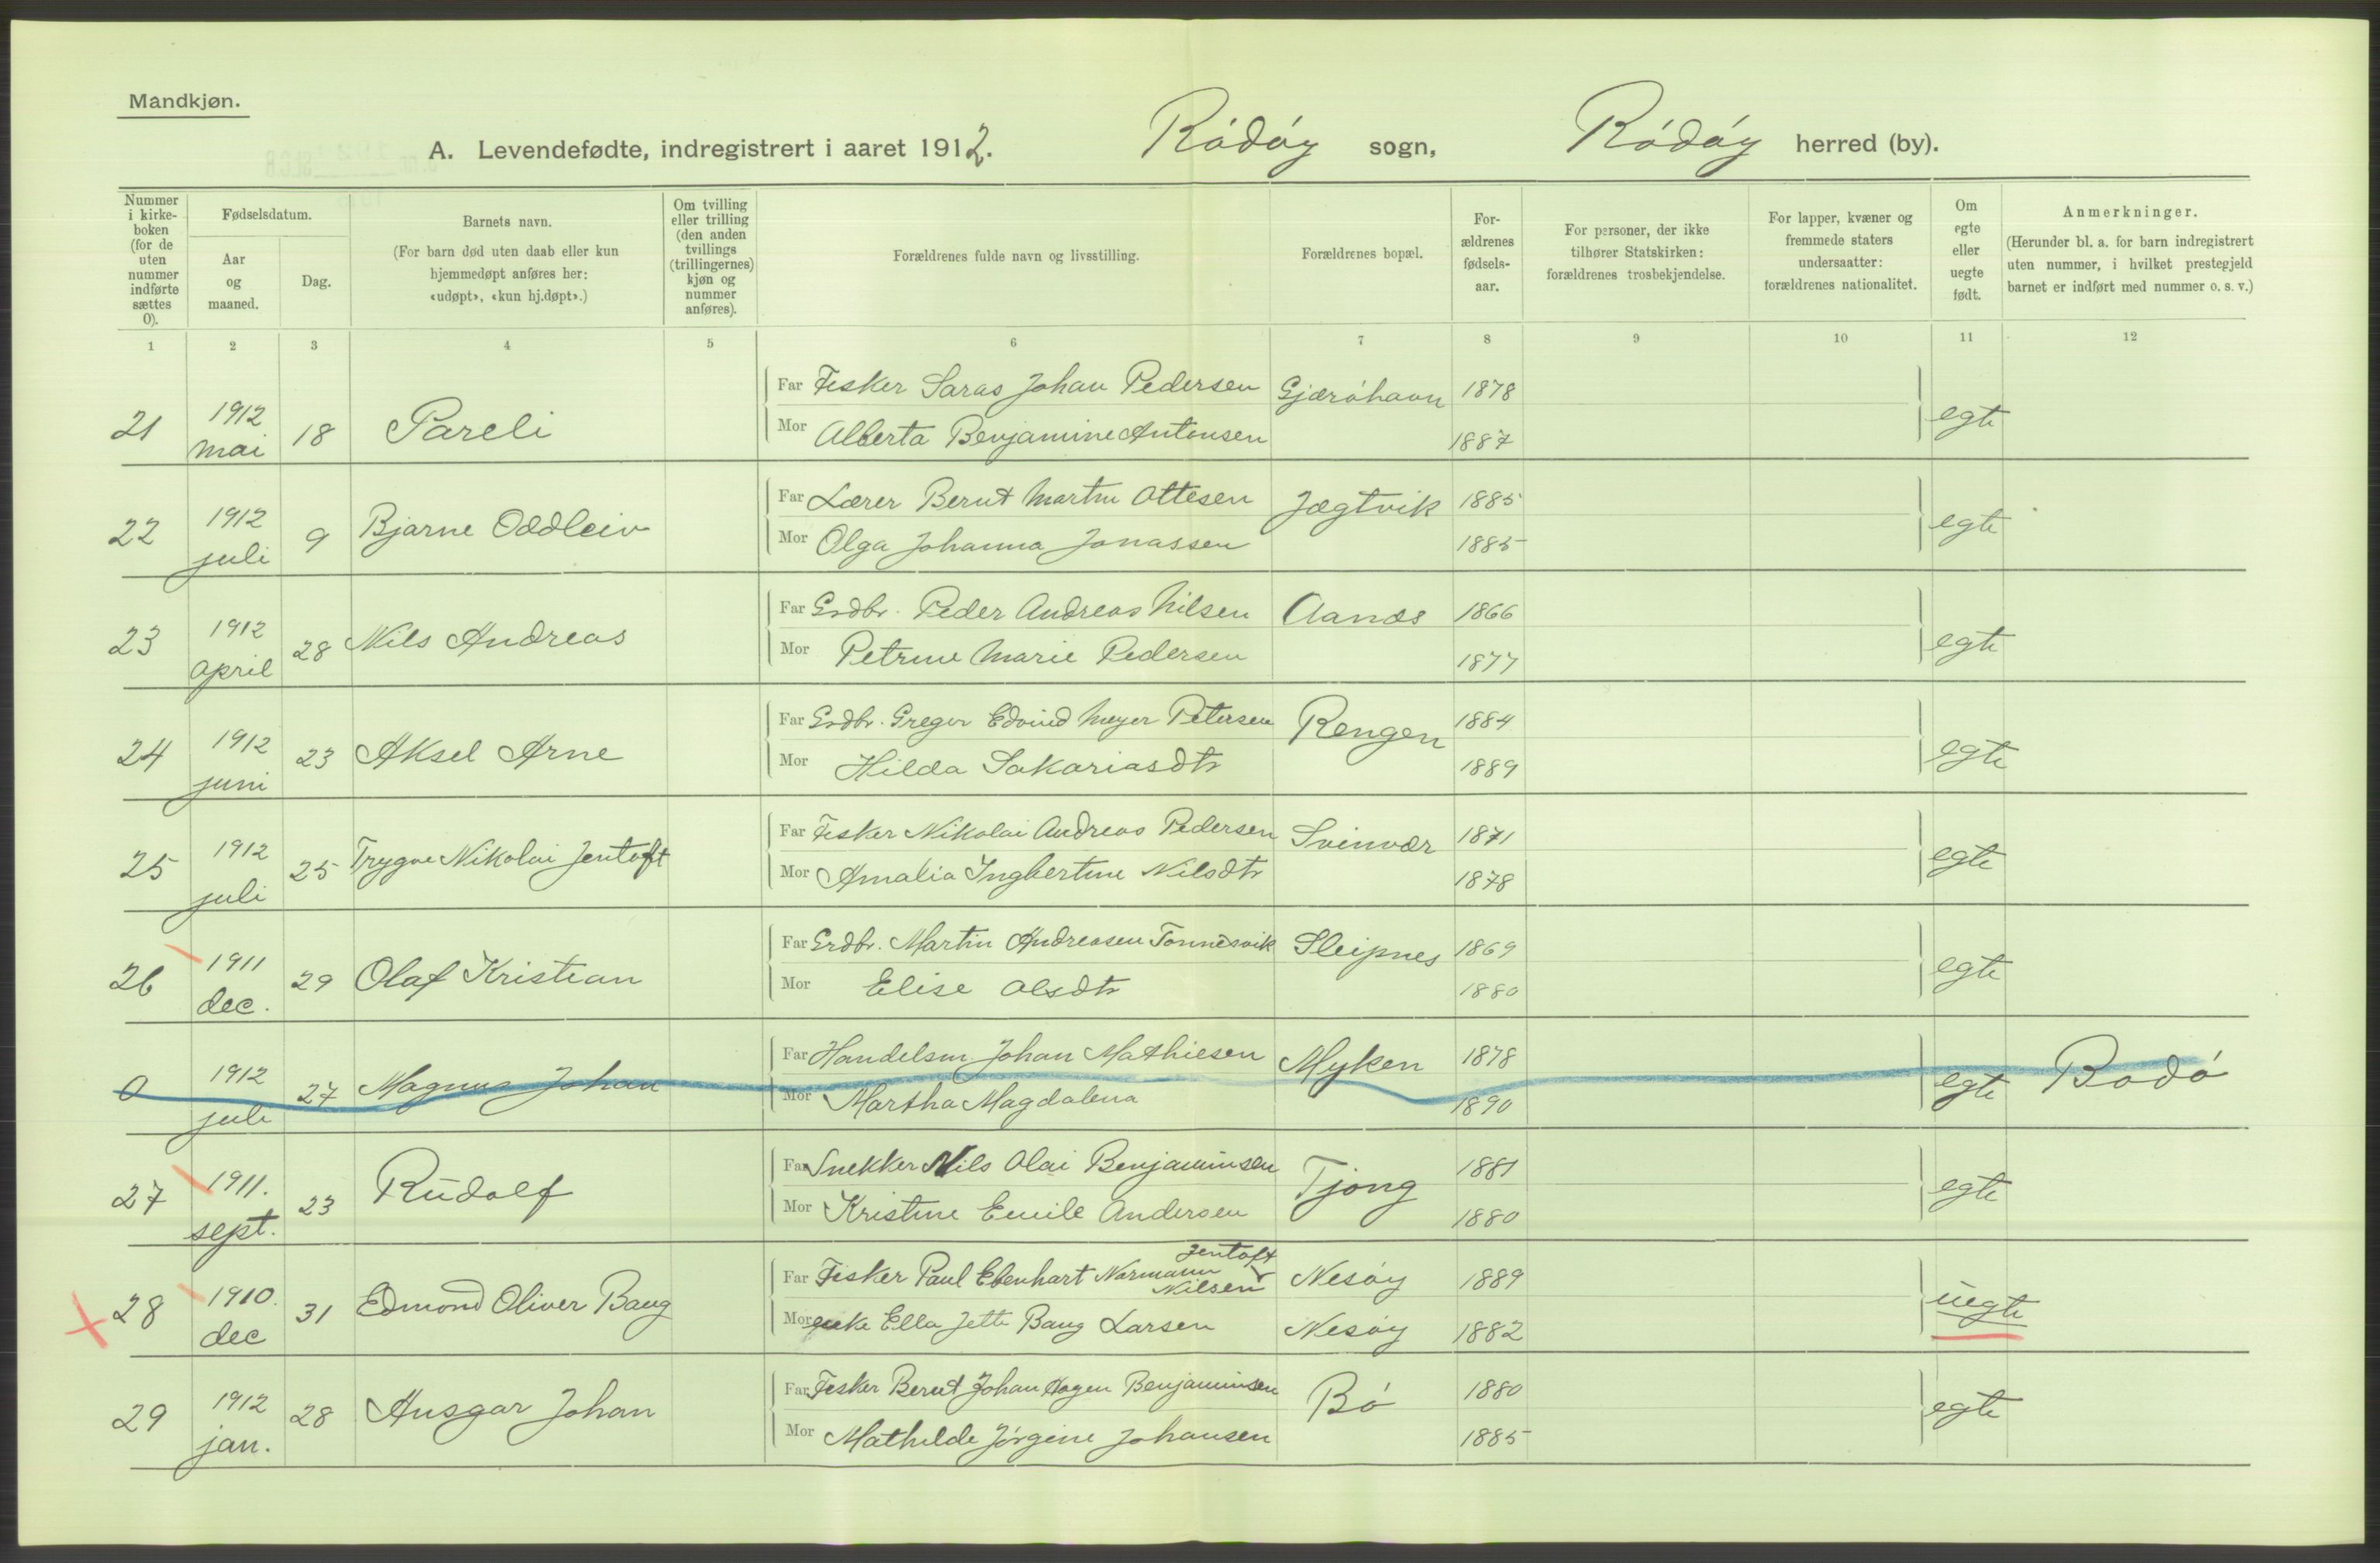 Mandkjøn.
A. Levendefødte, indregistrert i aaret 1912. Rödöy sogn, Rödöy herred (by).
Nummer i kirkeboken (for de uten nummer indførte sættes 0).
Fødselsdatum.
Aar og maaned.
Dag.
Barnets navn.
(For barn død uten daab eller kun hjemmedøpt anføres her: «udøpt», «kun hj.døpt».)
Om tvilling eller trilling (den anden tvillings (trillingernes) kjøn og nummer anføres).
Forældrenes fulde navn og livsstilling.
Forældrenes bopæl.
For-ældrenes fødsels-aar.
For personer, der ikke tilhører Statskirken: forældrenes trosbekjendelse.
For lapper, kvæner og fremmede staters undersaatter: forældrenes nationalitet.
Om egte eller uegte født.
Anmerkninger.
(Herunder bl. a. for barn indregistrert uten nummer, i hvilket prestegjeld barnet er indført med nummer o. s. v.)
1 2 3 4 5 6 7 8 9 10 11 12
21 1912 mai 18 Pareli
Far Fisker Saras Johan Pedersen Gjæröhavn 1878 egte
Mor Alberta Benjamine Antonsen 1887
22 1912 juli 9 Bjarne Oddleiv
Far Lærer Bernt Martin Ottesen Jægtvik 1885 egte
Mor Olga Johanna Jonassen 1885
23 1912 april 28 Nils Andreas
Far Grdbr. Peder Andreas Nilsen Aanes 1866 egte
Mor Petrine Marie Pedersen 1877
24 1912 juni 23 Aksel Arne
Far Grdbr. Greger Edvind Meyer Petersen Rengen 1884 egte
Mor Hilda Sakariasdtr 1889
25 1912 juli 25 Trygve Nikolai Jentoft
Far Fisker Nikolai Andreas Pedersen Svinvær 1871 egte
Mor Amalia Ingbertine Nilsdtr 1878
26 1911 dec. 29 Olaf Kristian
Far Grdbr. Martin Andreasen Tonnesvik Sleipnes 1869 egte
Mor Elise Olsdtr 1880
0 1912 juli 27 Magnus Johan
Far Handelsm. Johan Mathiesen Myken 1878 egte Bodö
Mor Martha Magdalena 1890
27 1911. sept. 23 Rudolf
Far Snekker Nils Olai Benjaminsen Tjong 1881 egte
Mor Kristine Emile Andersen 1880
28 1910. dec 31 Edmond Oliver Baug
Far Fisker Paul Ebenhart Normann Jentoft Nilsen Nesöy 1889 uegte
Mor Ella Jette Baug Larsen Nesöy 1882
29 1912 jan. 28 Ansgar Johan
Far Fisker Bernt Johan Hagen Benjaminsen Bö 1880 egte
Mor Mathilde Jörgine Johansen 1885